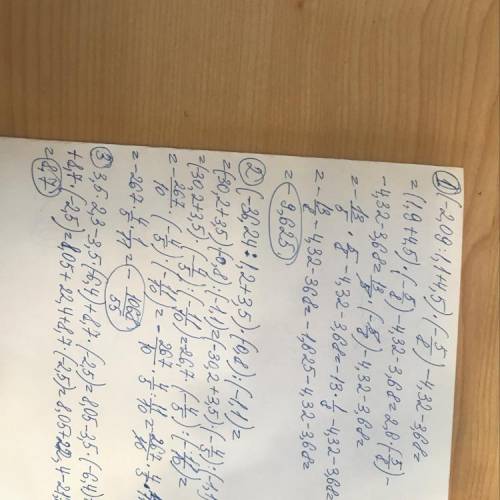 ① (-2,09 : 1,1 + 4,5) · (-5/8) - 4,32 - 3,68 =
= (1,9 + 4,5) · (-5/8) - 4,32 - 3,68 = 2,6 (-5/8) -
- 4,32 - 3,68 = 13/5 · (-5/8) - 4,32 - 3,68 =
= - 13/5 · 5/8 - 4,32 - 3,68 = - 13 · 1/8 - 4,32 - 3,68 =
= - 13/8 - 4,32 - 3,68 = - 1,625 - 4,32 - 3,68 =
= - 9,625
② (-36,24 : 1,2 + 3,5) · (-0,8) : (-1,1) =
= (30,2 + 3,5) · (-0,8) : (-1,1) = (-30,2 + 3,5) · (-4/5) : (-1,1)
= (30,2 + 3,5) · (-4/5) : (-11/10) = -26,7 · (-4/5) : (-11/10) =
= - 267/10 · (-4/5) : (-11/10) = - 267/10 · 4/5 : 11/10 =
= - 267 · 4/5 · 1/11 = - 1068/55
③ 3,5 · 2,3 - 3,5 · (-6,4) + 8,7 · (-2,5) = 8,05 - 3,5 · (-6,4)
+ 8,7 · (-2,5) = 8,05 + 22,4 + 8,7 · (-2,5) = 8,05 + 22,4 -
= 8,7